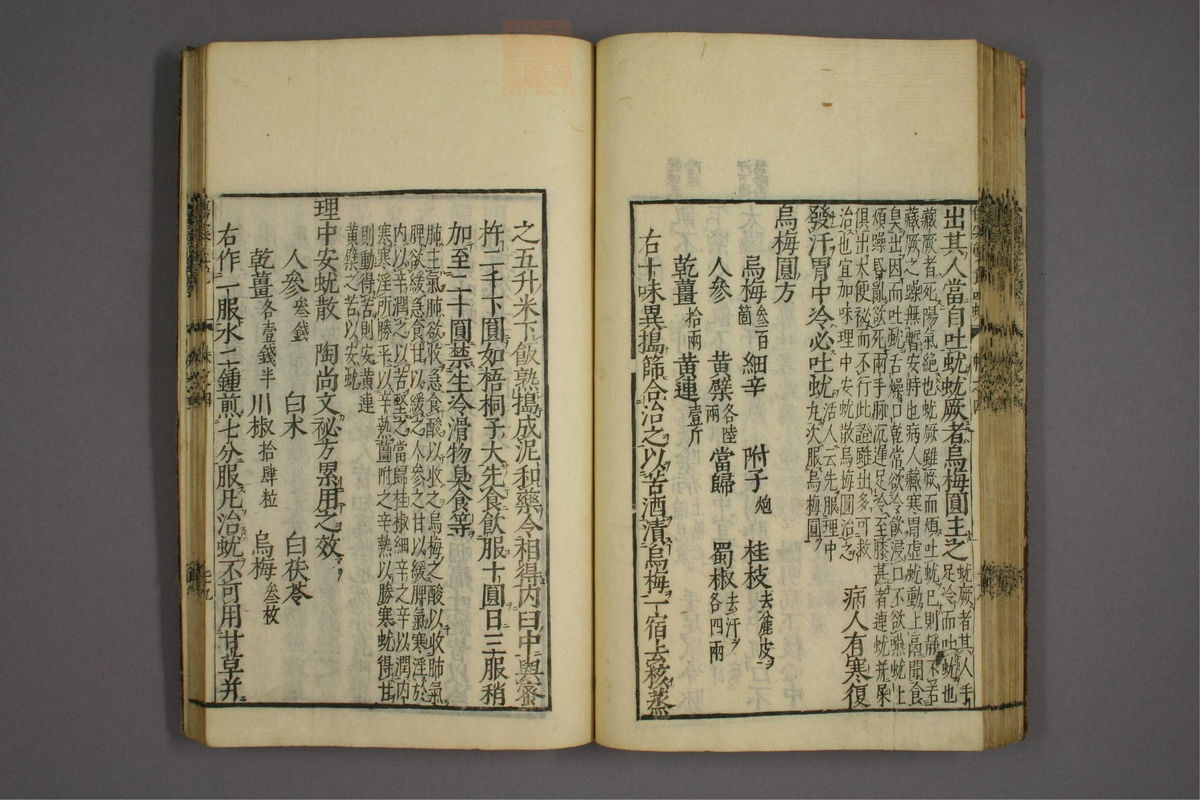 出其人當自吐蚘蚘厥者烏梅圓主之
蚘厥者其人手
足冷而吐蚘也
藏厥者死陽氣絶也蚘厥雖厥而煩吐蚘已則靜不若
藏厥之躁無暫安時也病人藏寒胃虛蚘動上膈聞食
臭出因而吐蚘舌燥口乾常欲冷飲浸口不欲嚥蚘上
煩躁昏亂欲死兩手脉沉遲足冷至膝甚者連蚘并屎
俱出大便秘而不行此證雖出多可救
治也宜加味理中安蚘散烏梅圓治之
病人有寒復
發汗胃中冷必吐蚘
活人云先服理中
九次服烏梅圓
烏梅圓方
烏梅叁百箇 細辛 附子炮 桂枝去麁皮
人參 黃蘗各陸兩 當歸 蜀椒去汗各四兩
乾薑拾兩 黃連壹斤
右十味異搗篩合治之以苦酒漬烏梅一宿去核蒸
之五升米下飯熟搗成泥和藥令相得內臼中與蜜
杵二千下圓如梧桐子大先食飲服十圓日三服稍
加至二十圓禁生冷滑物臭食等
肺主氣肺欲收急食酸以收之烏梅之酸以收肺氣
脾欲緩急食甘以緩之人參之甘以緩脾氣寒淫於
內以辛潤之以苦堅之當歸桂椒細辛之辛以潤內
寒寒淫所勝平以辛熱薑附之辛熱以勝寒蚘得甘
則動得苦則安黃連
黃蘗之苦以安蚘
理中安蚘散 陶尚文祕方累用之效
人參叁錢 白朮 白茯苓
乾薑各壹錢半 川椒拾肆粒 烏梅叁枚
右作一服水二鍾煎七分服凡治蚘不可用甘草并